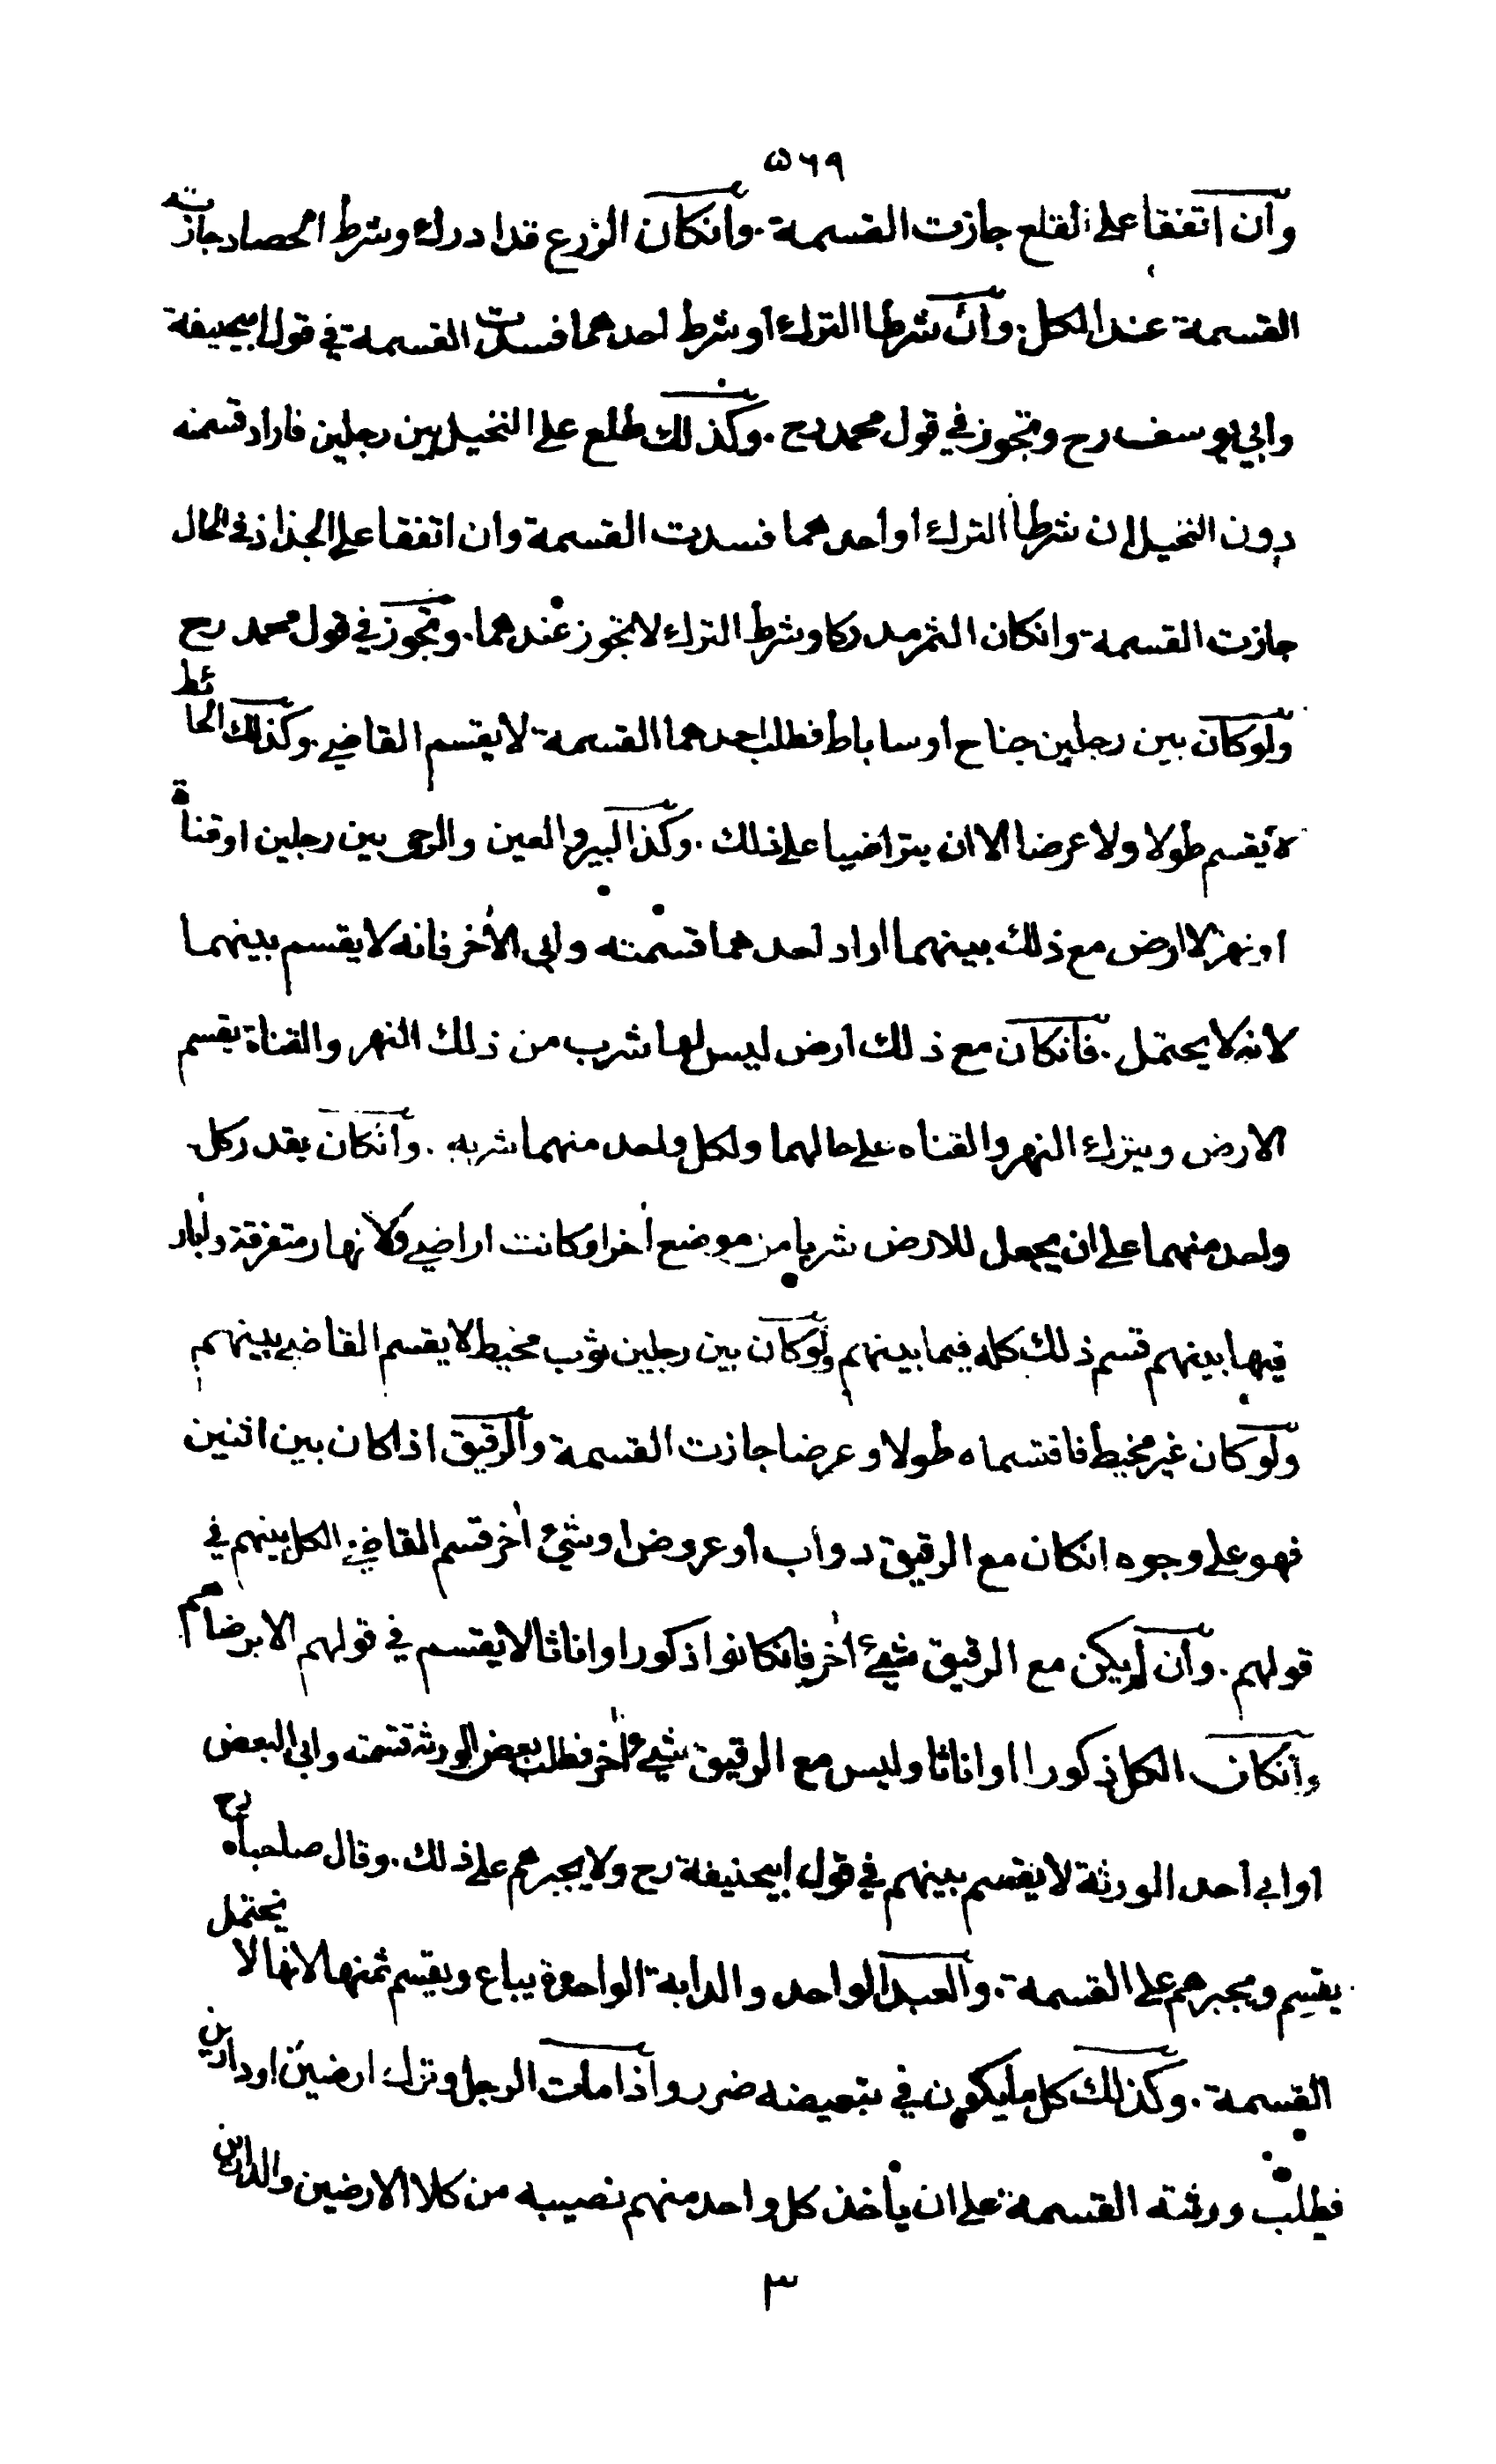 ۵۶۹
وان اتفقا على القلع جازت القسمة . وانكان الزرع قد ادرك وشرط الحصاد جازت
القسمة عند الكل . وان شرطا الترك او شرط احدهما فسدت القسمة في قول ابيحنيفة
وابي يوسف رح وتجوز في قول محمد رح . وكذلك طلع على النخيل بين رجلين فاراد قسمته
دون النخيل ان شرطا الترك او احدهما فسدت القسمة وان اتفقا على الجذاذ في الحال
جازت القسمة وانكان الثمر مدركا وشرط الترك لا تجوز عندهما . وتجوز في قول محمد رح
ولو كان بين رجلين جناح او ساباط فطلب احدهما القسمة لا يقسم القاضي . وكذلك الحائط
لا يقسم طولا ولا عرضا الا ان يتراضيا على ذلك . وكذا البير والعين والرحى بين رجلين او قناة
او نهر لا ارض مع ذلك بينهما اراد احدهما قسمته وابى الآخر فانه لا يقسم بينهما
لانه لا يحتمل . فانكان مع ذلك ارض ليس لها شرب من ذلك النهر والقناة يقسم
الارض ويترك النهر والقناه على حالهما ولكل واحد منهما شربه . وانكان يقدر كل
واحد منهما على ان يجعل للارض شربا من موضع آخر او كانت اراضي وانهار متفرقة وابار
فيها بينهم قسم ذلك كله فيما بينهم ولو كان بين رجلين ثوب مخيط لا يقسم القاضي بينهم
ولو كان غير مخيط فاقتسماه طولا وعرضا جازت القسمة والرقيق اذا كان بين اثنين
فهو على وجوه انكان مع الرقيق دواب او عروض او شيء آخر قسم القاضي الكل بينهم في
قولهم . وان لم يكن مع الرقيق شيء آخر فانكانوا ذكورا واناثا لا يقسم في قولهم الا برضاهم
وانكان الكل ذكورا او اناثا وليس مع الرقيق شيء آخر فطلب بعض الورثة قسمته وابى البعض
او ابى احد الورثة لا يقسم بينهم في قول ابيحنيفة رح ولا يجبرهم على ذلك . وقال صاحباه رح
يقسم ويجبرهم على القسمة . والعبد الواحد والدابة الواحدة يباع ويقسم ثمنها لانها لا يحتمل
القسمة . وكذلك كل ما يكون في تبعيضه ضرر واذا مات الرجل وترك ارضين او دارين
فطلب ورثته القسمة على ان ياخذ كل واحد منهم نصيبه من كلا الارضين والدارين
٣